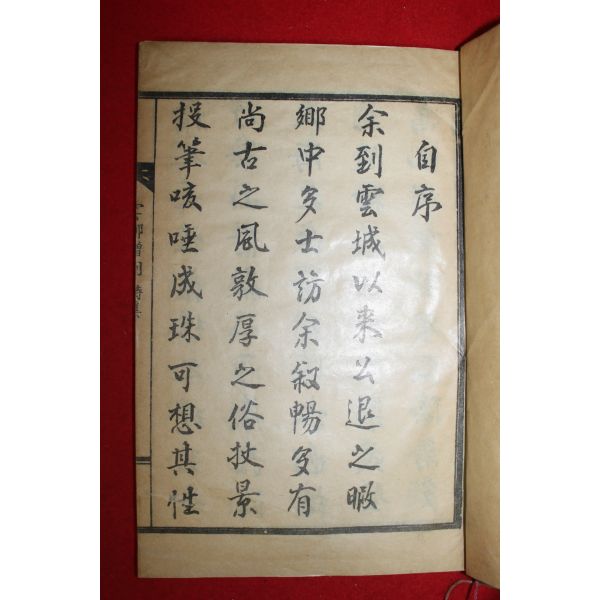 自序
余到雲城以来公退之暇
鄉中多士訪余敘暢多有
尚古之風敦厚之俗扙景
投筆咳唾成珠可想其性